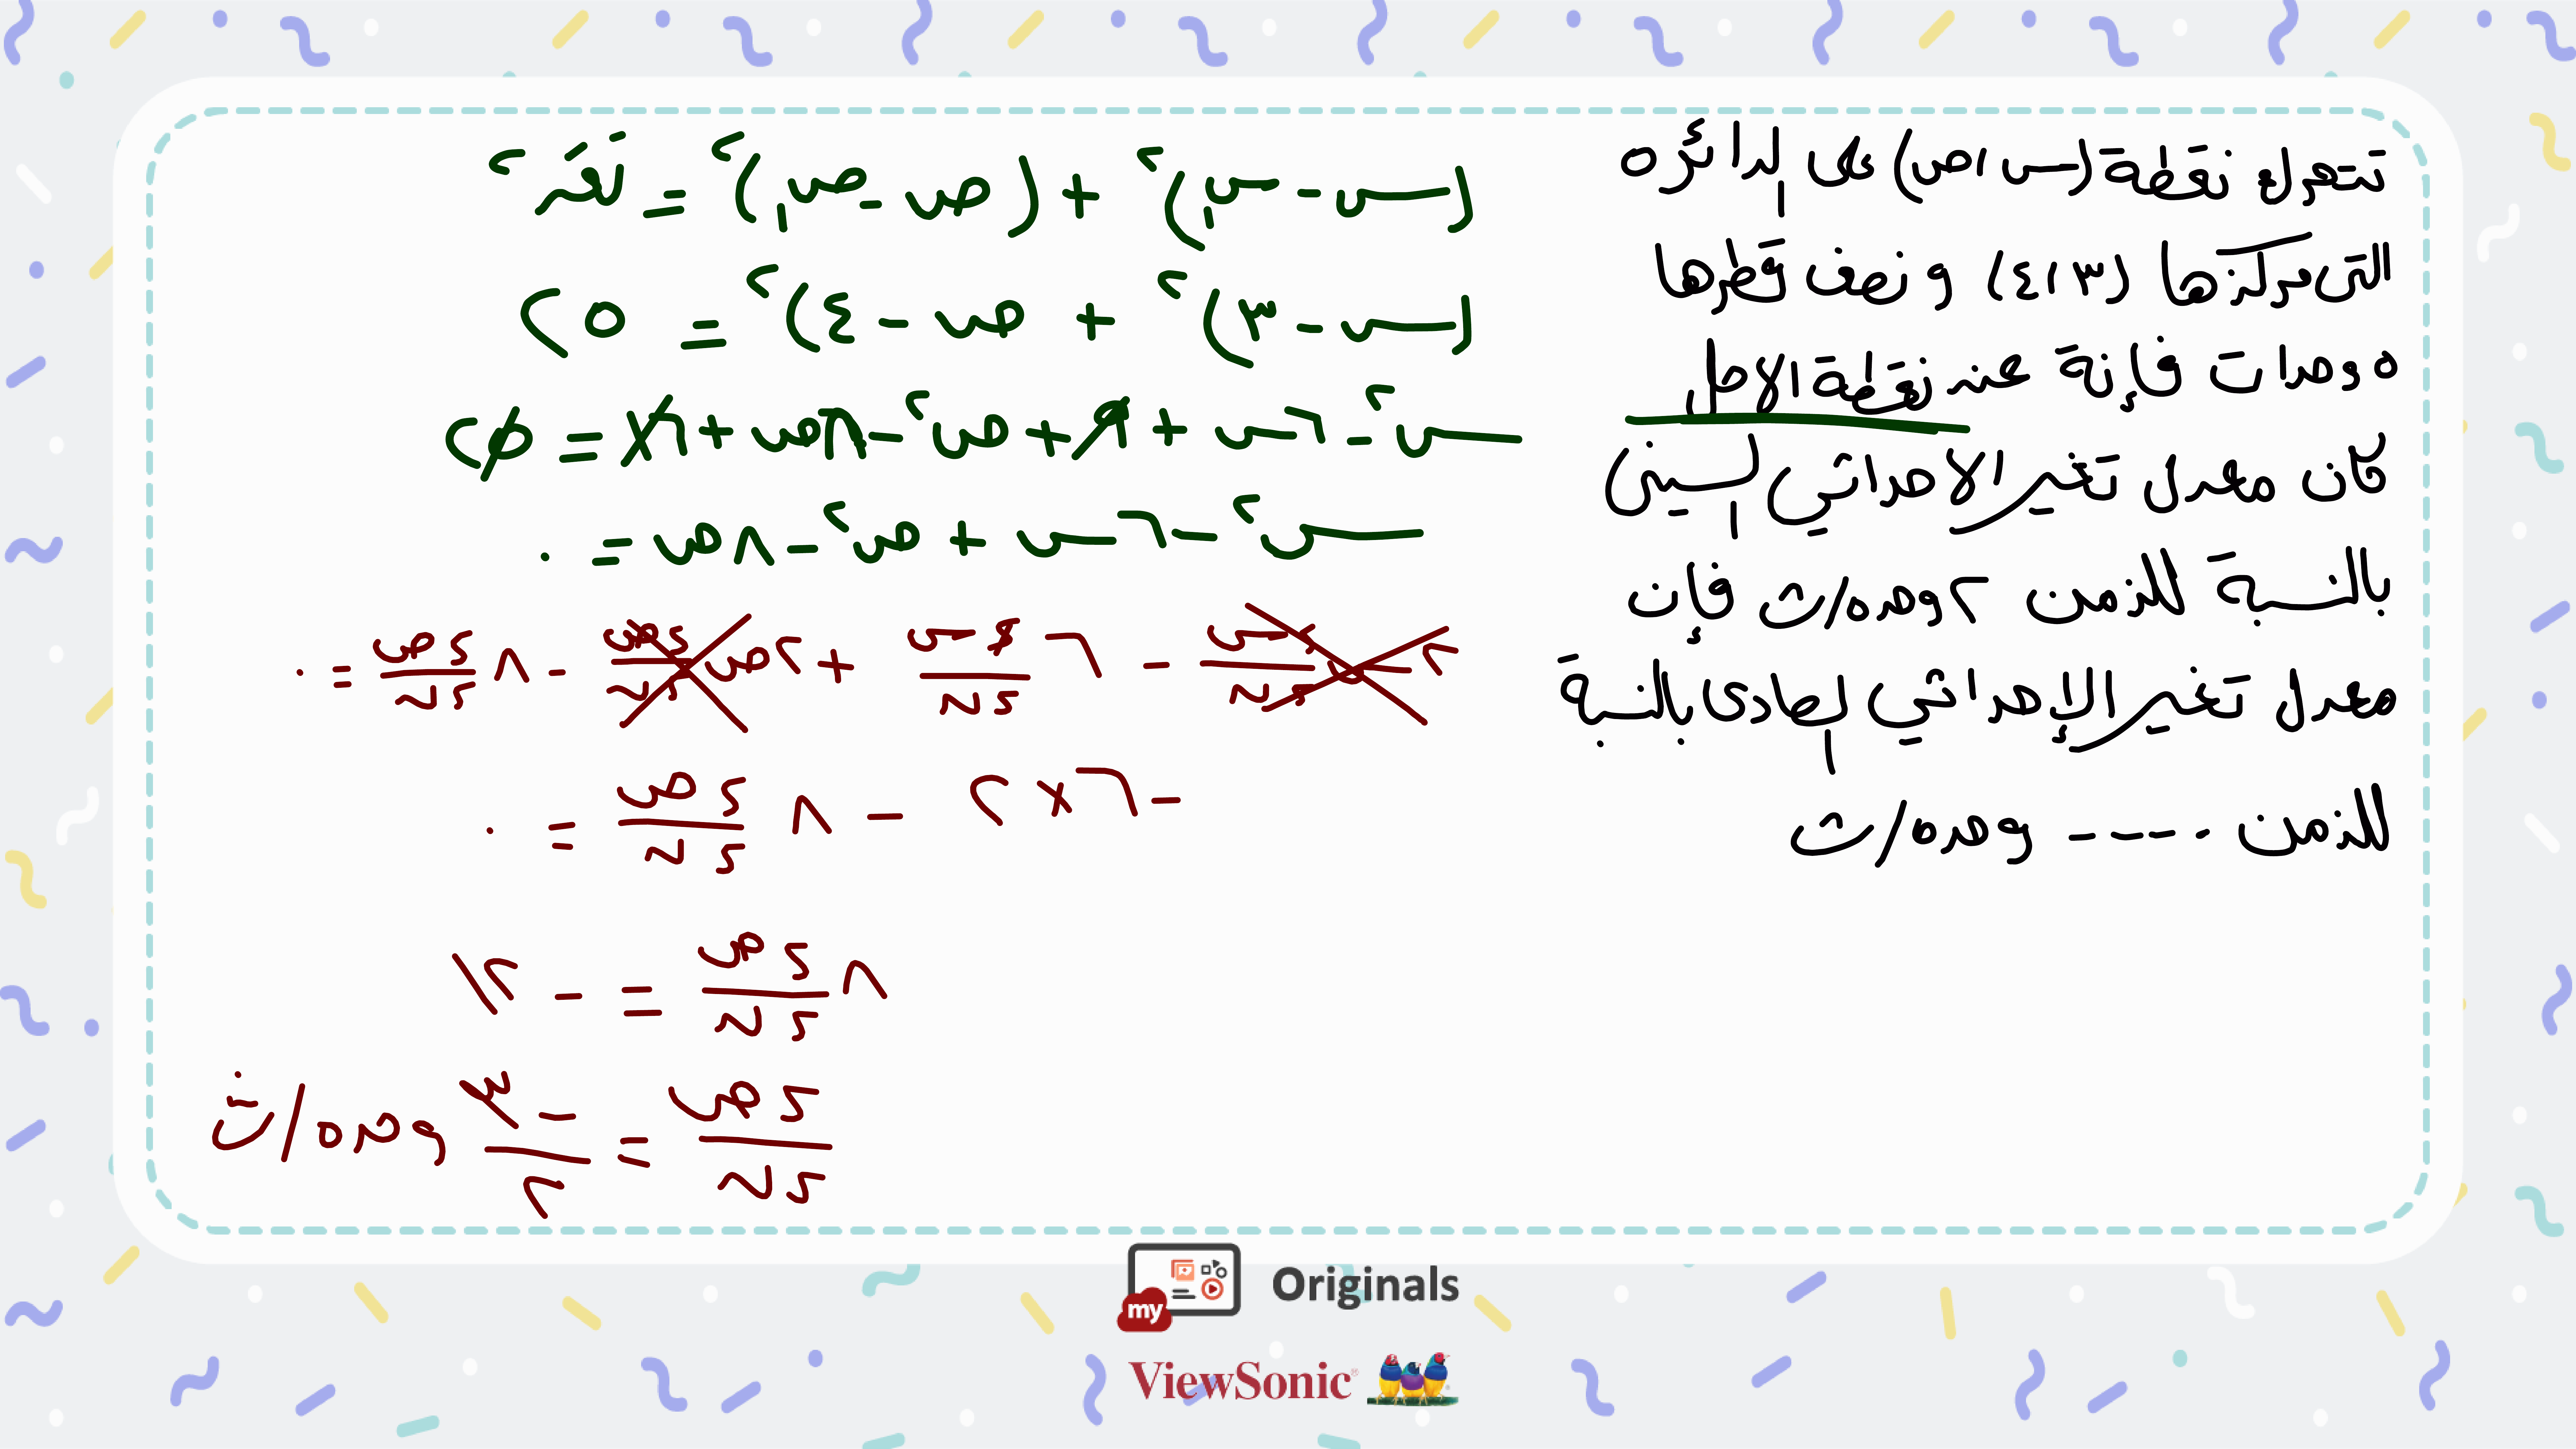 تتحرك نقطة (س، ص) على الدائره
التى مركزها (٣، ٤) و نصف قطرها
٥ وحدات فإنة عند نقطة الاصل
كان معدل تغير الاحداثي السينى
بالنسبة للزمن ٢ وحده/ث فإن
معدل تغير الإحداثي الصادى بالنسبة
للزمن ..---- وحده/ث
(س - س₁)² + (ص - ص₁)² = نق²
(س - ٣)² + (ص - ٤)² = ٢٥
س² - ٦س + ٩ + ص² - ٨ص + ١٦ = ٢٥
س² - ٦س + ص² - ٨ص = ٠
٢س ءس/ءن - ٦ ءس/ءن + ٢ص ءص/ءن - ٨ ءص/ءن = ٠
- ٦ × ٢ - ٨ ءص/ءن = ٠
٨ ءص/ءن = - ١٢
ءص/ءن = - ٣/٢ وحده/ث
my Originals
ViewSonic